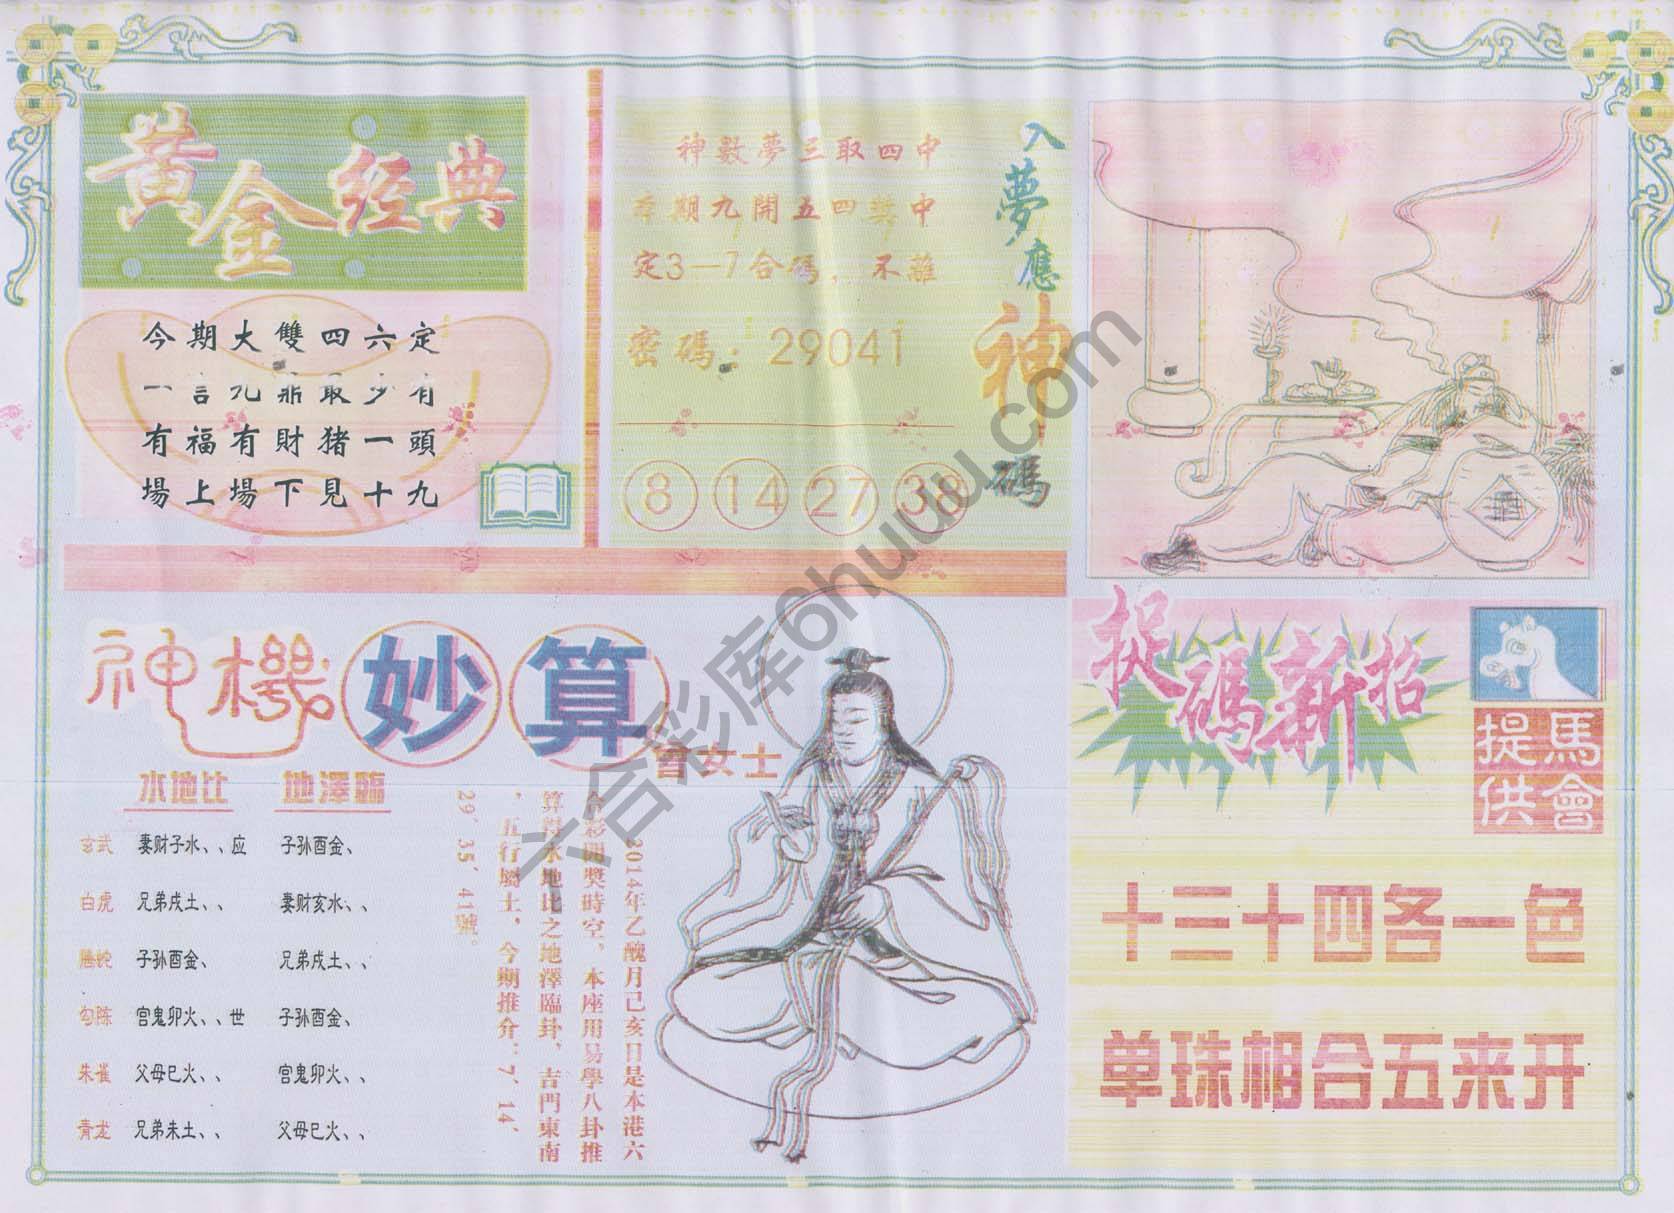 黃金經典
今期大雙四六定
一言九鼎最少有
有福有財猪一頭
場上場下見十九
入夢應神碼
神數夢三取四中
本期九開五四獎中
定3—7合碼，不離
密碼：29041
8 14 27 38
神機妙算
曾女士
水地比 地澤臨
玄武 妻财子水、、应 子孙酉金、
白虎 兄弟戌土、、 妻财亥水、、
腾蛇 子孙酉金、 兄弟戌土、、
勾陈 官鬼卯火、、世 子孙酉金、
朱雀 父母巳火、、 官鬼卯火、、
青龙 兄弟未土、、 父母巳火、、
2014年乙醜月己亥日是本港六
合彩開獎時空，本座用易學八卦推
算得水地比之地澤臨卦，吉門東南
，五行屬土，今期推介：7，14，
29，35，41號。
捉碼新招
馬會提供
十三十四各一色
单珠相合五来开
六合彩库6huw.com